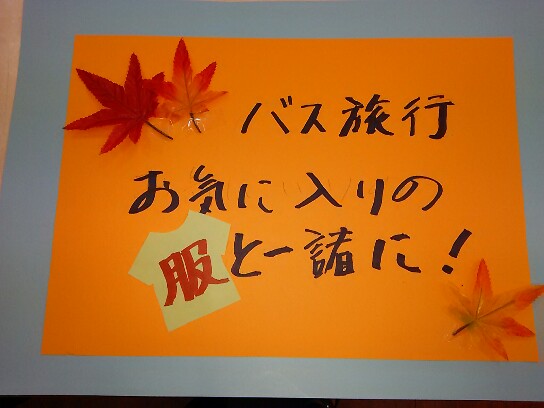 バス旅行
お気に入りの
服と一諸に!